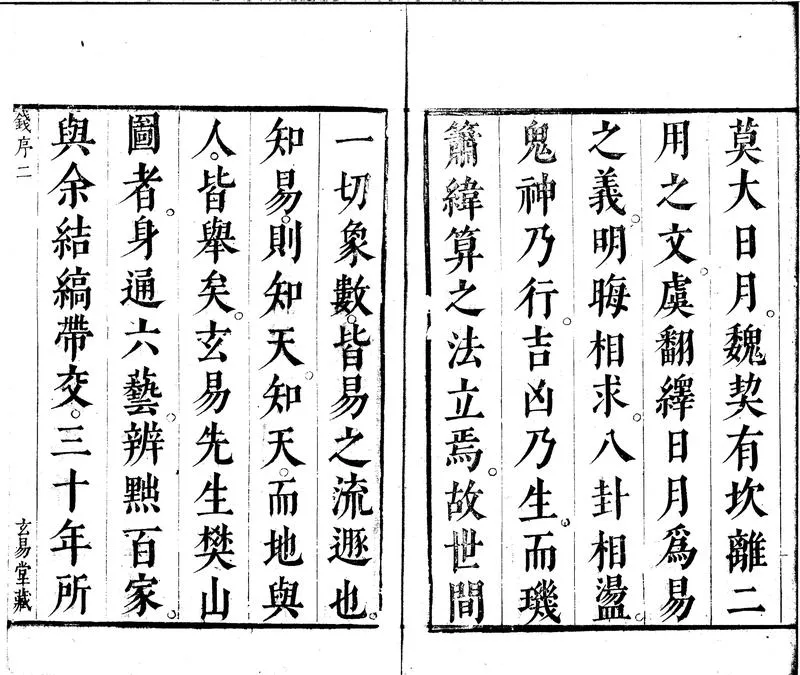 莫大日月。魏契有坎離二
用之文。虞翻繹日月爲易
之義。明晦相求。八卦相盪。
鬼神乃行。吉凶乃生。而璣
籥緯算之法立焉。故世間
一切象數。皆易之流遯也。
知易。則知天。知天。而地與
人。皆舉矣。玄易先生樊山
圖者。身通六藝。辨黜百家。
與余結縞帶交。三十年所
錢序二
玄易堂藏